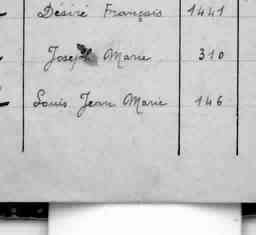 Désiré François 1441
Joseph Marie 310
Louis Jean Marie 146